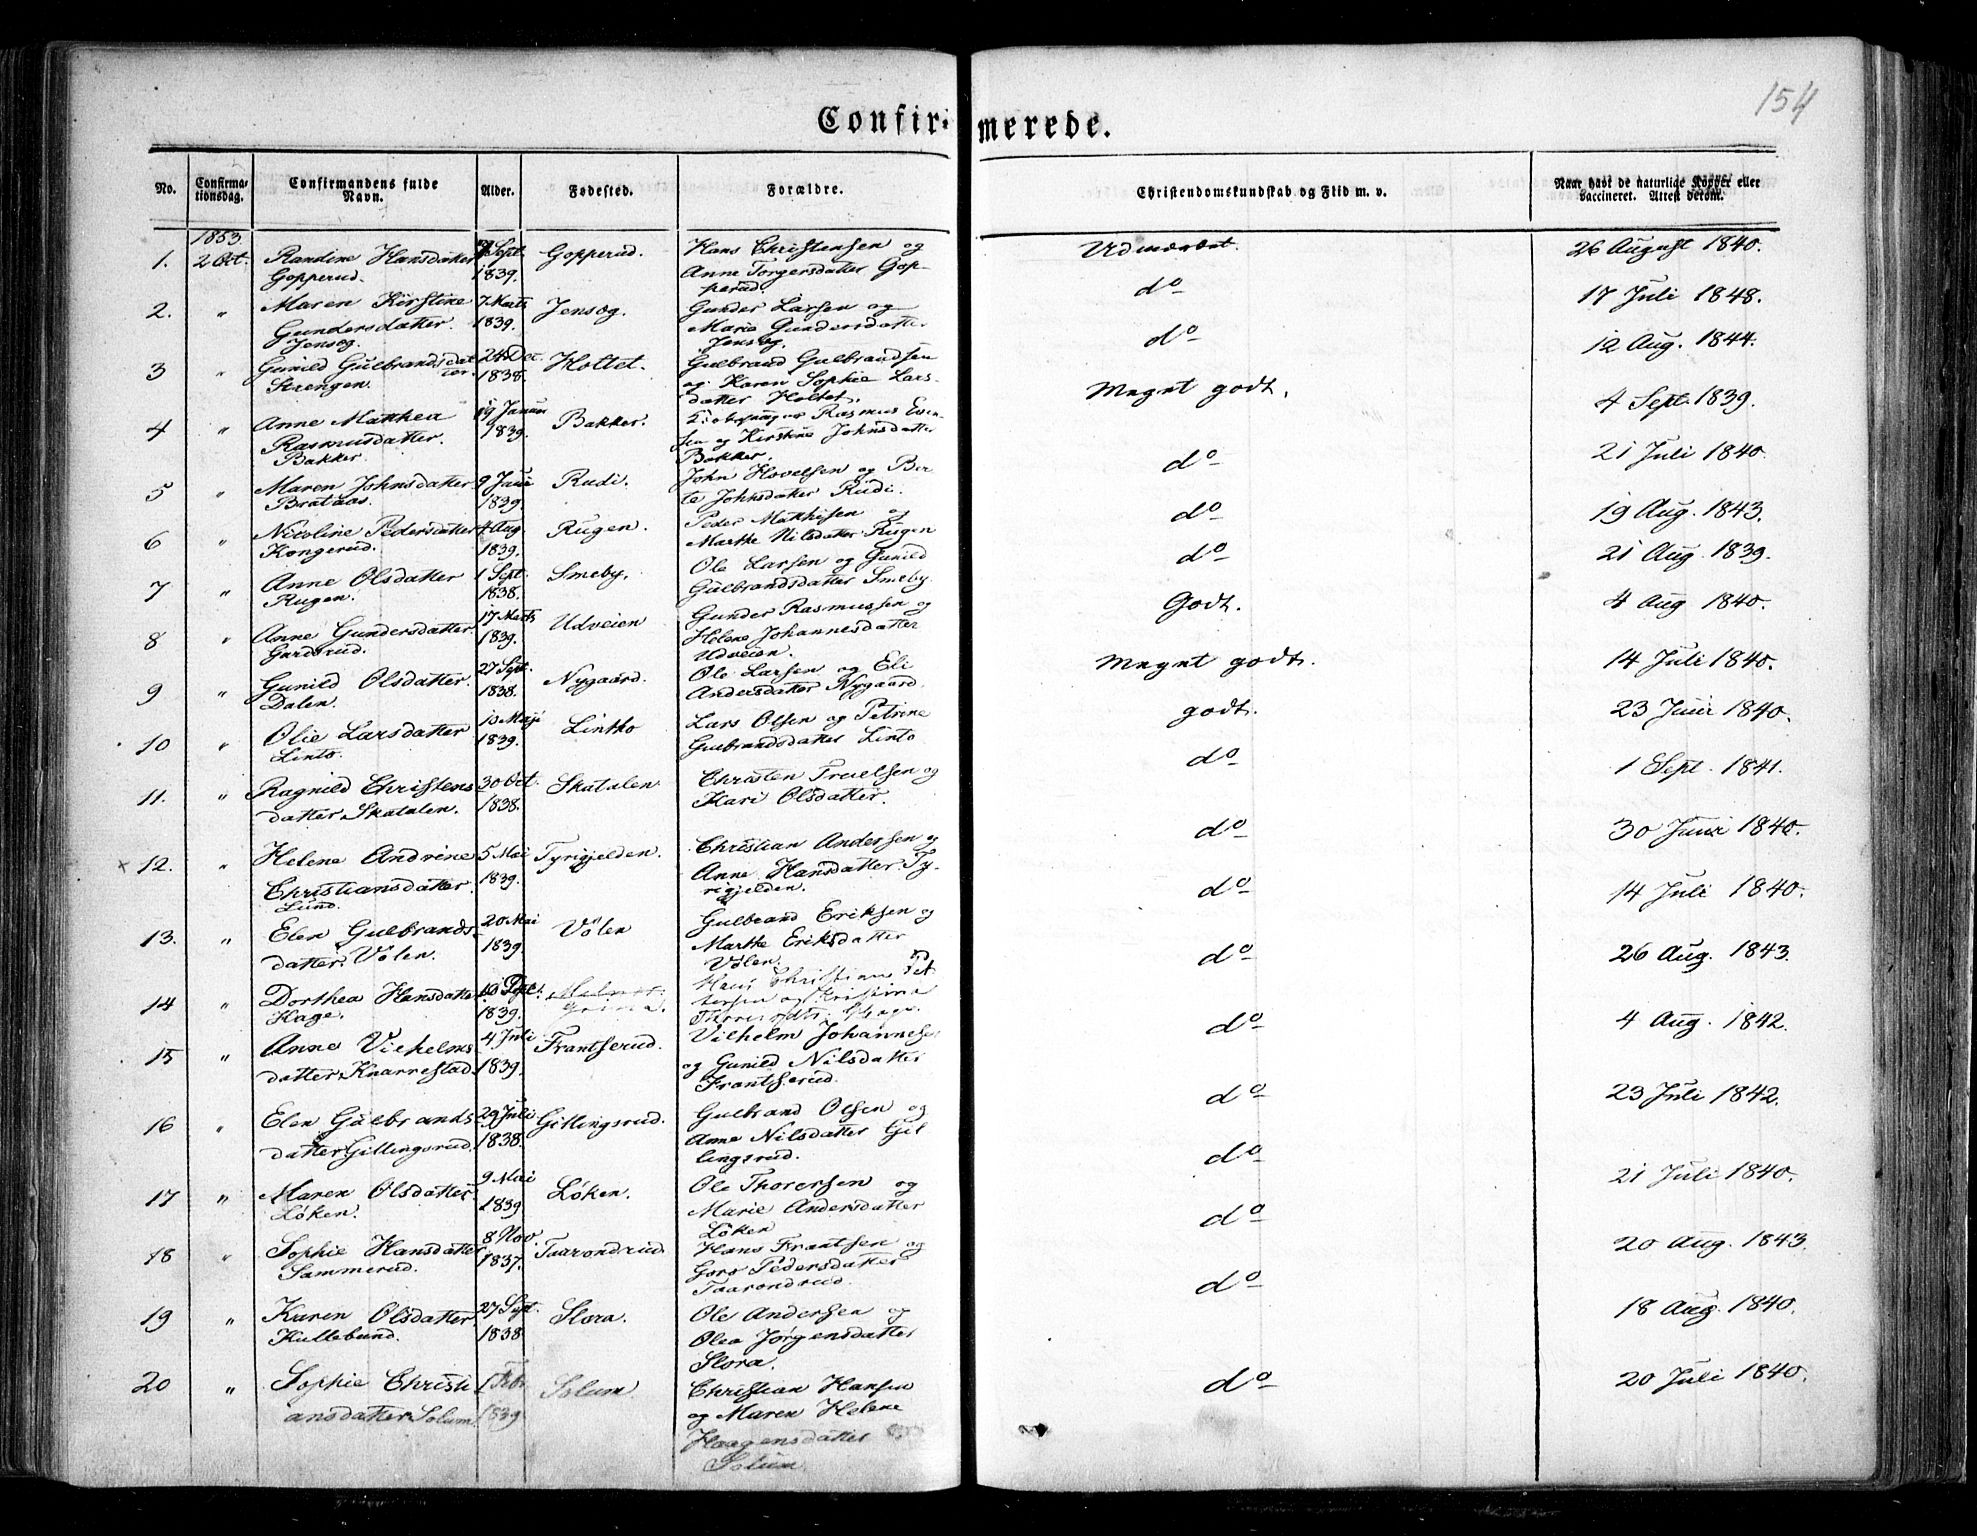 154
Confirmerede.
No. Confirmationsdag. Confirmandens fulde Navn. Alder. Fødested. Forældre. Christendomskundskab og Flid m. v. Naar havt de naturlige Kopper eller vaccineret. Attest derom.
1853.
1. 2 Oct. Randine Hansdatter Gopperud. Sept. 1839. Gopperud. Hans Christensen og Anne Torgersdatter Gopperud. Udmærket. 26 August 1840.
2. " Maren Kirstine Gundersdatter Jensøg. 7 Marts 1839. Jensøg. Gunder Larsen og Marie Gundersdatter Jensøg. do 17 Juli 1848.
3 " Gunild Gulbrandsdatter Strengen. 24 Dec. 1838. Holtet. Gulbrand Gulbrandsen og Karen Sophie Larsdatter Holtet. do 12 Aug. 1844.
4 " Anne Mathea Rasmusdatter Bakker. 19 Januar 1839. Bakker. Rasmus Evensen og Kirstine Johnsdatter Bakker. Meget godt. 4 Sept. 1839.
5 " Maren Johnsdatter Brataas. 9 Januar 1839. Rudi. John Hovelsen og Berte Johnsdatter Rudi. do 21 Juli 1840.
6 " Nicoline Pedersdatter Kongerud. 4 Aug. 1839. Rugen. Peder Mathisen og Marthe Nilsdatter Rugen do 19 Aug. 1843.
7 " Anne Olsdatter Rugen. 1 Sept. 1838. Smeby. Ole Larsen og Gunild Gulbrandsdatter Smeby. do 21 Aug. 1839.
8 " Anne Gundersdatter Gardsrud. 17 Marts 1839. Udveien Gunder Rasmussen og Helene Johannesdatter Udveien. Godt. 4 Aug 1840.
9 " Gunild Olsdatter Dalen. 27 Sept. 1838. Nygaard. Ole Larsen og Eli Andersdatter Nygaard. Meget godt. 14 Juli 1840.
10 " Olie Larsdatter Linto. 10 Maji 1839. Lintho Lars Olsen og Petrine Gulbrandsdatter Linto godt. 23 Juni 1840.
11. " Ragnild Christensdatter Skatalen. 30 Oct. 1838. Skatalen Christen Truelsen og Kari Olsdatter. do 1 Sept. 1841.
12. " Helene Andrine Christiansdatter Lund. 5 Mai 1839. Tyrigjelden. Christian Andersen og Anne Hansdatter Tyrigjelden. do 30 Juni 1840.
13. " Elen Gulbrandsdatter Völen. 20 Mai 1839. Völen Gulbrand Eriksen og Marthe Eriksdatter Völen. do 14 Juli 1840.
14 " Dorthea Hansdatter Hage. 10 Sept. 1839. Hans Christian Pettersen og Kristina do 26 Aug. 1843.
15 " Anne Vilhelmsdatter Knarrestad. 4 Juli 1839. Frantserud. Vilhelm Johannesen og Gunild Nilsdatter Frantserud. do 4 Aug. 1842.
16 " Elen Gulbrandsdatter Gillingsrud. 29 Juli 1838. Gillingsrud. Gulbrand Olsen og Anne Nilsdatter Gillingsrud. do 23 Juli 1842.
17 " Maren Olsdatter Löken. 9 Mai 1839 Löken. Ole Thorersen og Marie Andersdatter Löken do 21 Juli 1840.
18 " Sophie Hansdatter Sammerud. 8 Nov. 1837. Taarondrud. Hans Frantsen og Goro Pedersdatter Taarondrud. do 20 Aug. 1843.
19 " Karen Olsdatter Kullebund. 27 Sept. 1838 Slora. Ole Andersen og Olea Jörgensdatter Slora. do 18 Aug. 1840.
20 " Sophie Christiansdatter Solum. 1 Febr 1839 Solum. Christian Hansen og Maren Helene Haagensdatter Solum. do 20 Juli 1840.